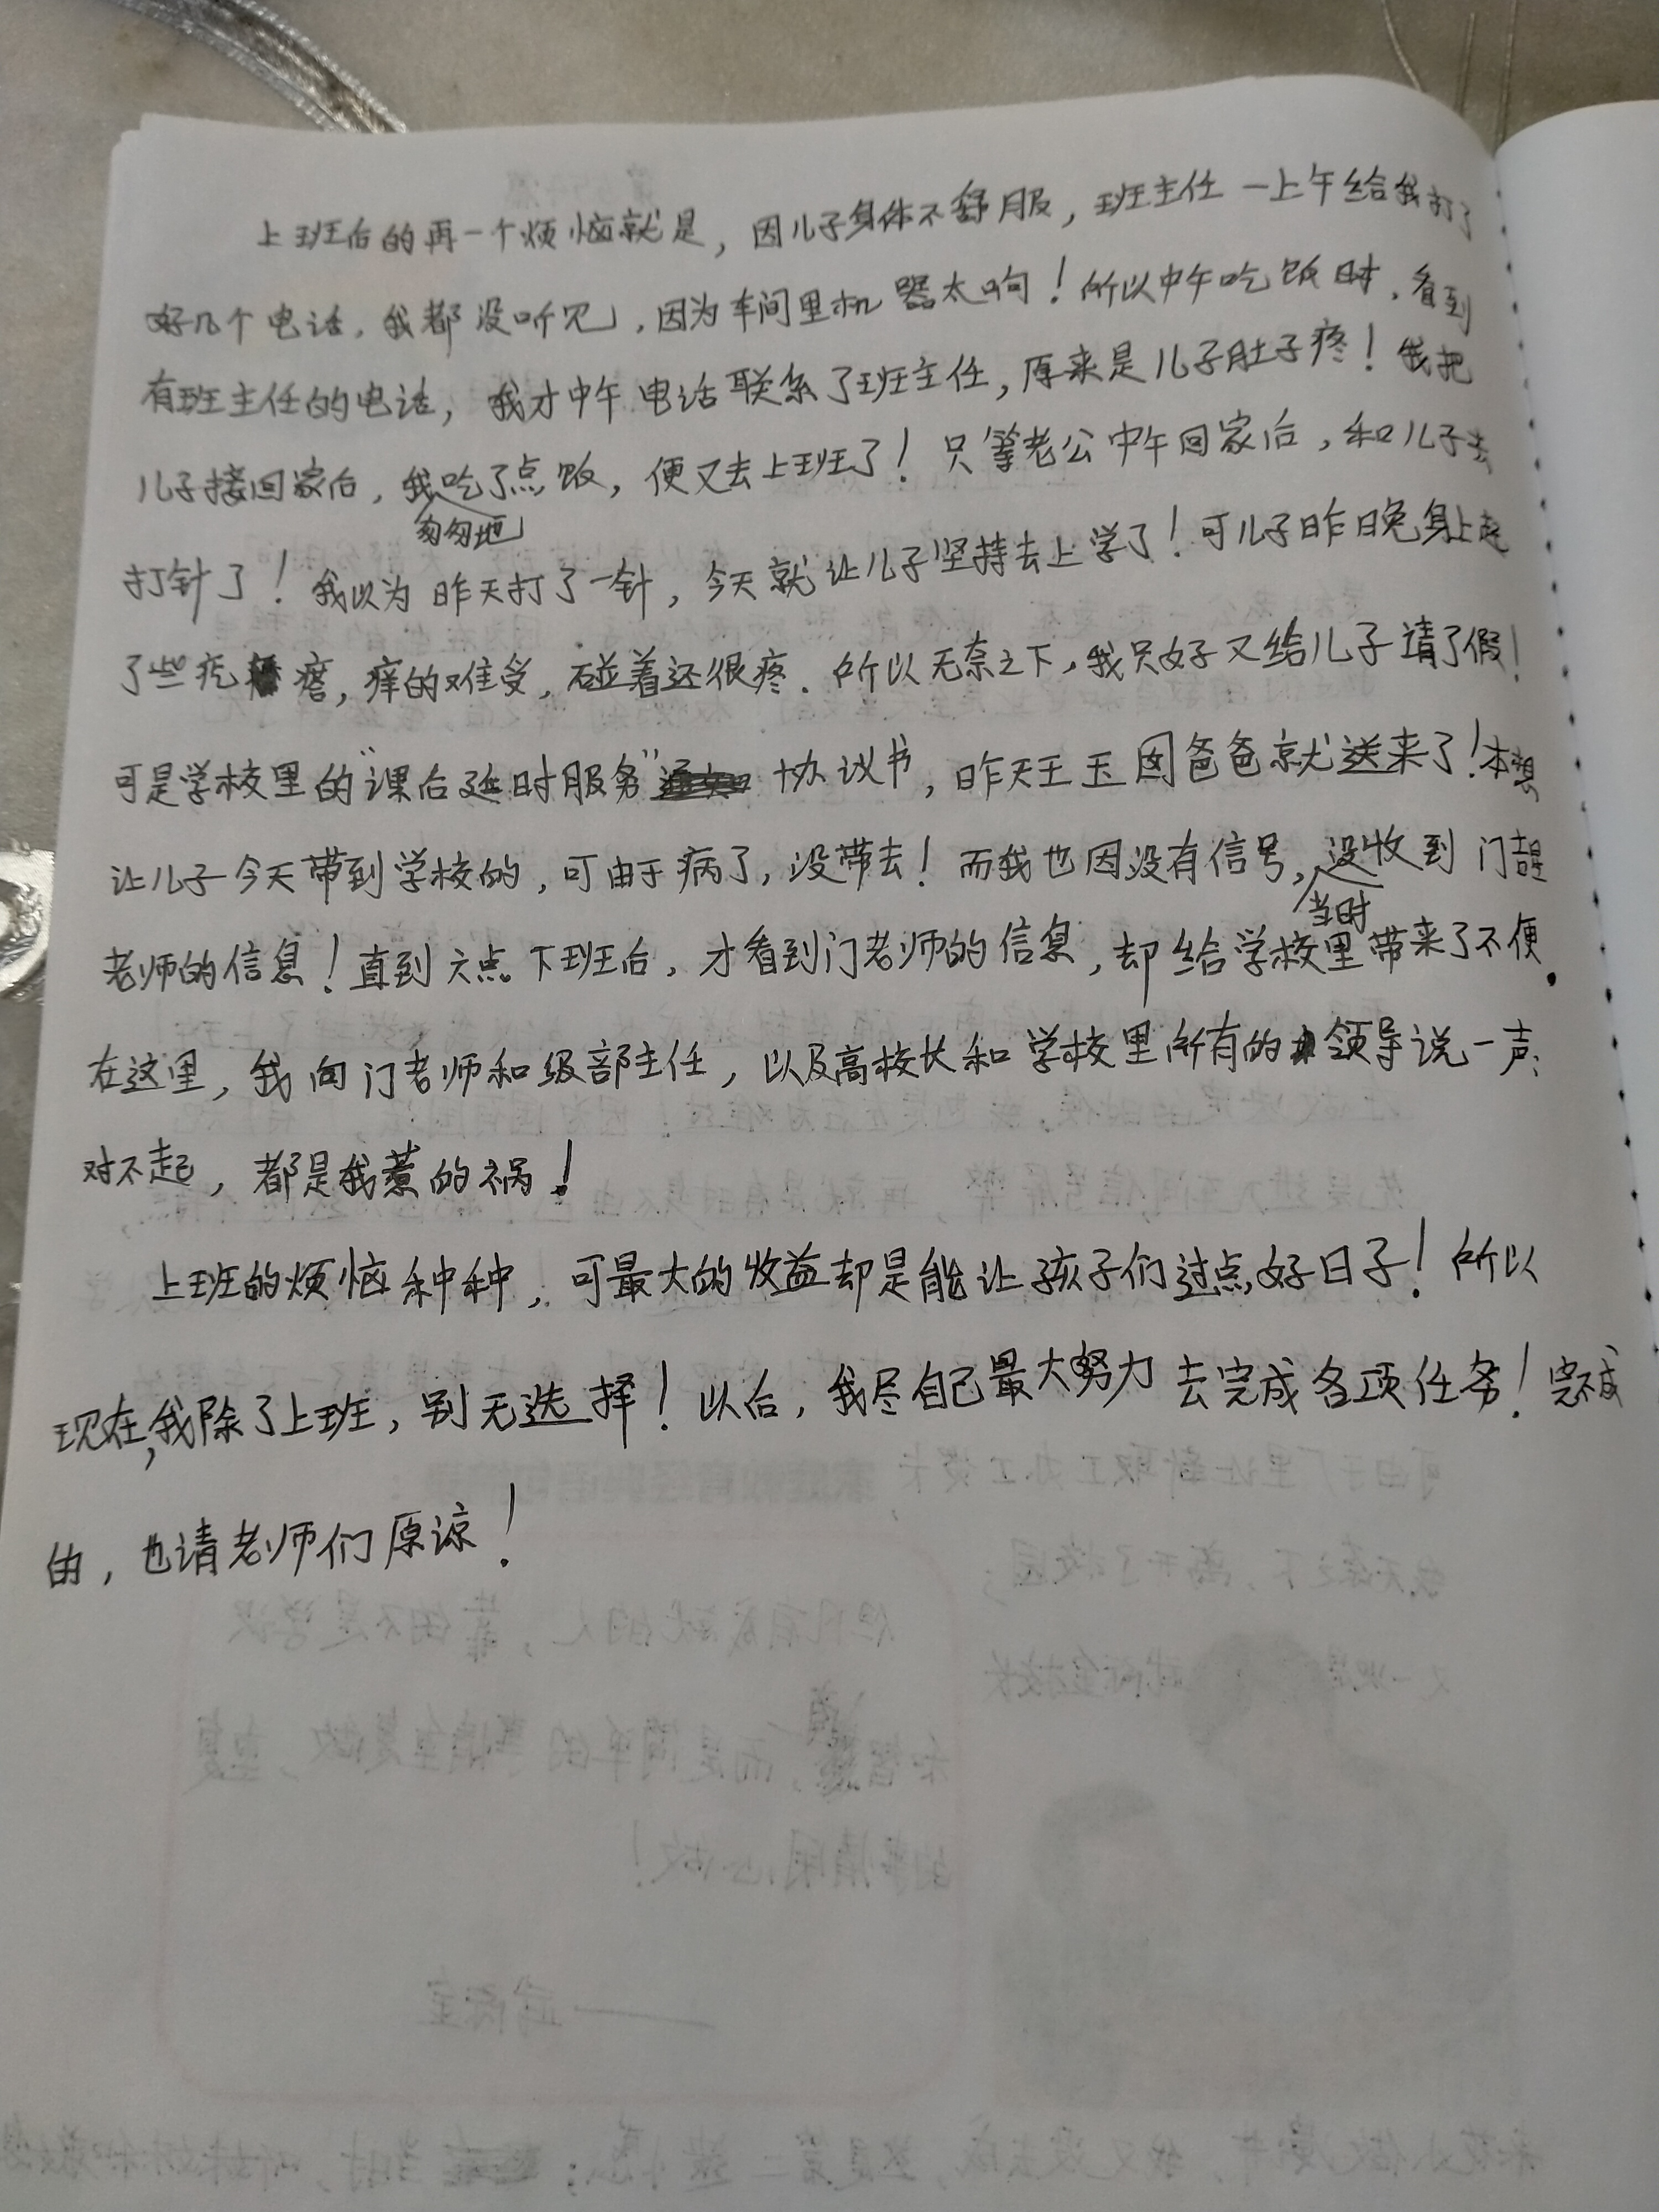 上班后的再一个烦恼就是，因儿子身体不舒服，班主任一上午给我打了
好几个电话，我都没听见，因为车间里机器太响！所以中午吃饭时，看到
有班主任的电话，我才中午电话联系了班主任，原来是儿子肚子疼！我把
儿子接回家后，我匆匆地吃了点饭，便又去上班了！只等老公中午回家后，和儿子去
打针了！我以为昨天打了一针，今天就让儿子坚持去上学了！可儿子昨日晚身上起
了些疙瘩，痒的难受，碰着还很疼．所以无奈之下，我只好又给儿子请了假！
可是学校里的“课后延时服务”协议书，昨天王玉囡爸爸就送来了！本想
让儿子今天带到学校的，可由于病了，没带去！而我也因没有信号，当时没收到门
老师的信息！直到六点下班后，才看到门老师的信息，却给学校里带来了不便．
在这里，我向门老师和级部主任，以及高校长和学校里所有的领导说一声：
对不起，都是我惹的祸！
上班的烦恼种种，可最大的收益却是能让孩子们过点好日子！所以
现在，我除了上班，别无选择！以后，我尽自己最大努力去完成各项任务！完不成
的，也请老师们原谅！